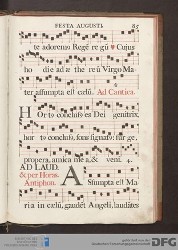 FESTA AUGUSTI. 85
te adoremus Regē regū ℣ Cujus
ho die ad æ the reū Virgo Ma
ter assumpta est cælū. Ad Cantica.
HOrtˢ conclusˢ es Dei genitrix,
hortˢ conclusˢ, fons signatˢ: surge,
propera, amica mea, & veni. 4.
AD LAUD.
& per Horas.
Antiphon. ASsumpta est Ma
ria in cælū, gaudēt Angeli, laudātes
DFG